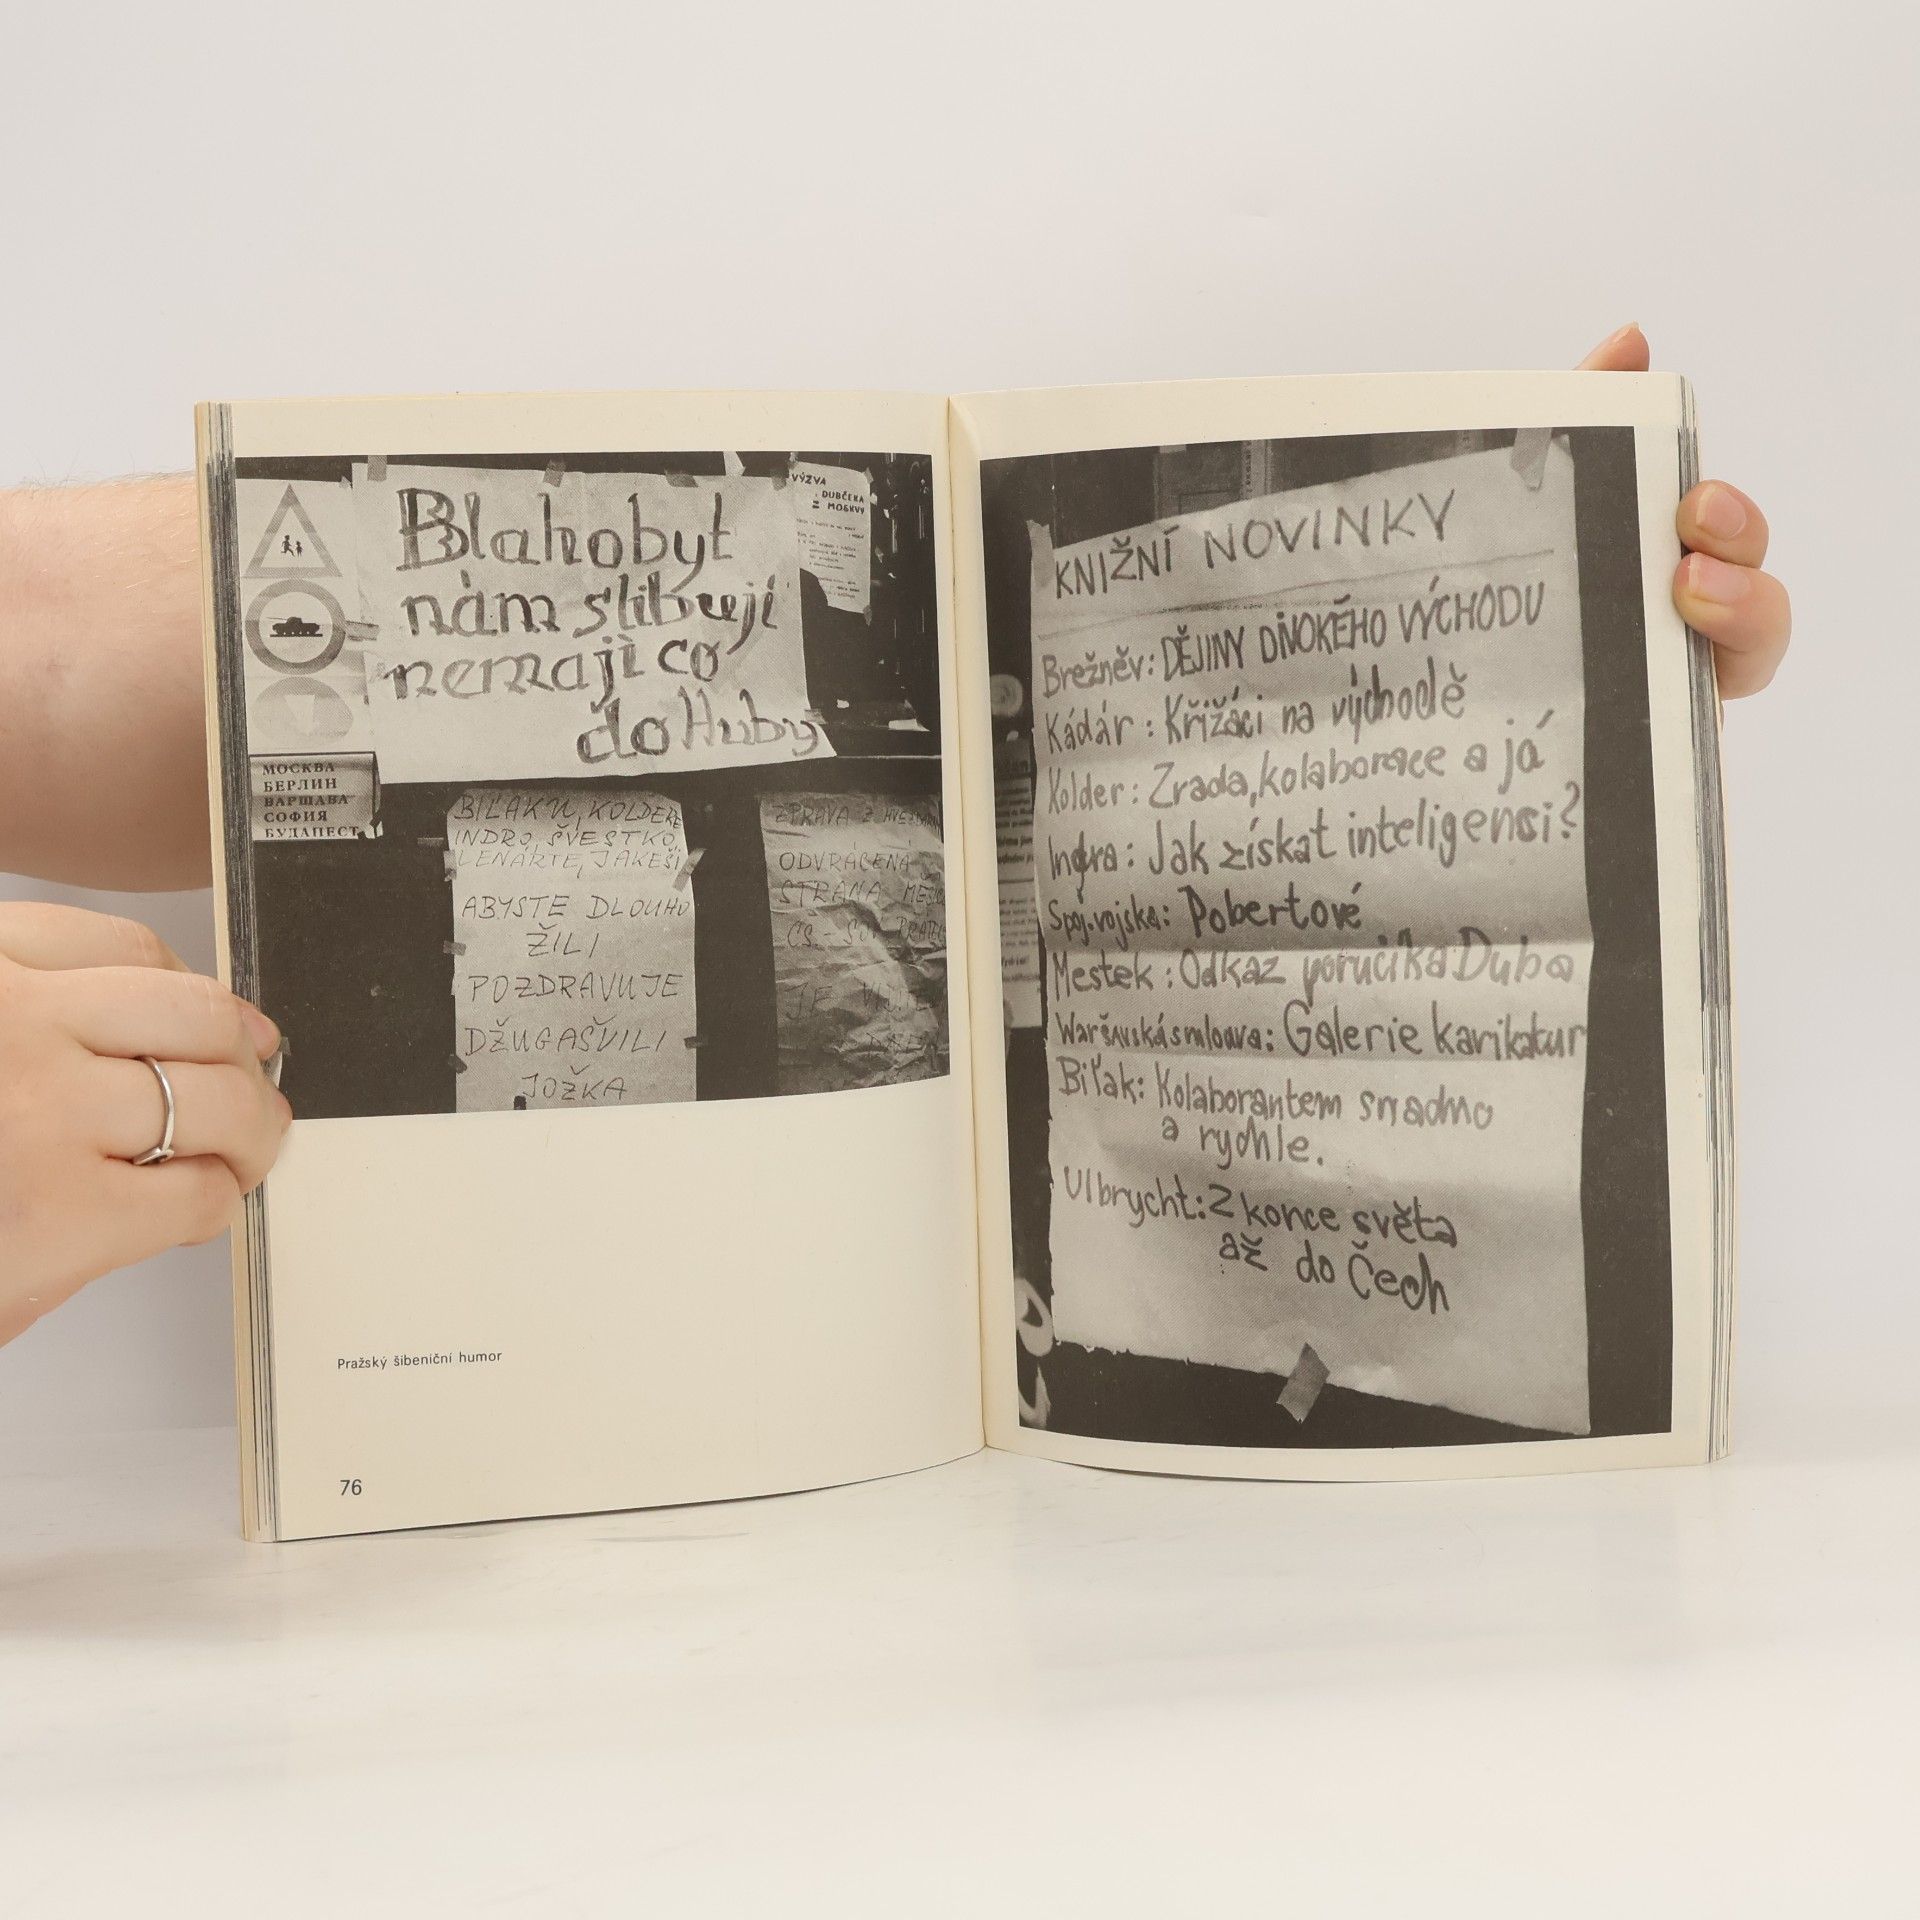 Blahobyt
nám slibují
nemají co
do Huby
VÝZVA
DUBČEKA
Z MOSKVY
МОСКВА
БЕРЛИН
ВАРШАВА
СОФИЯ
БУДАПЕСТ
BIĽAKU, KOLDERE
INDRO, ŠVESTKO,
LENÁRTE, JAKEŠI
ABYSTE DLOUHO
ŽILI
POZDRAVUJE
DŽUGAŠVILI
JOŽKA
ZPRÁVA Z
ODVRÁCENÁ
STRANA
ČS. - SOV.
JE
Pražský šibeniční humor
76
KNIŽNÍ NOVINKY
Brežněv: DĚJINY DIVOKÉHO VÝCHODU
Kádár: Křižáci na východě
Kolder: Zrada, kolaborace a já
Indra: Jak získat inteligensi?
Spoj.vojska: Pobertové
Mestek: Odkaz poručíka Duba
Waršavská smlouva: Galerie karikatur
Biľak: Kolaborantem snadno
a rychle.
Ulbrycht: Z konce světa
až do Čech